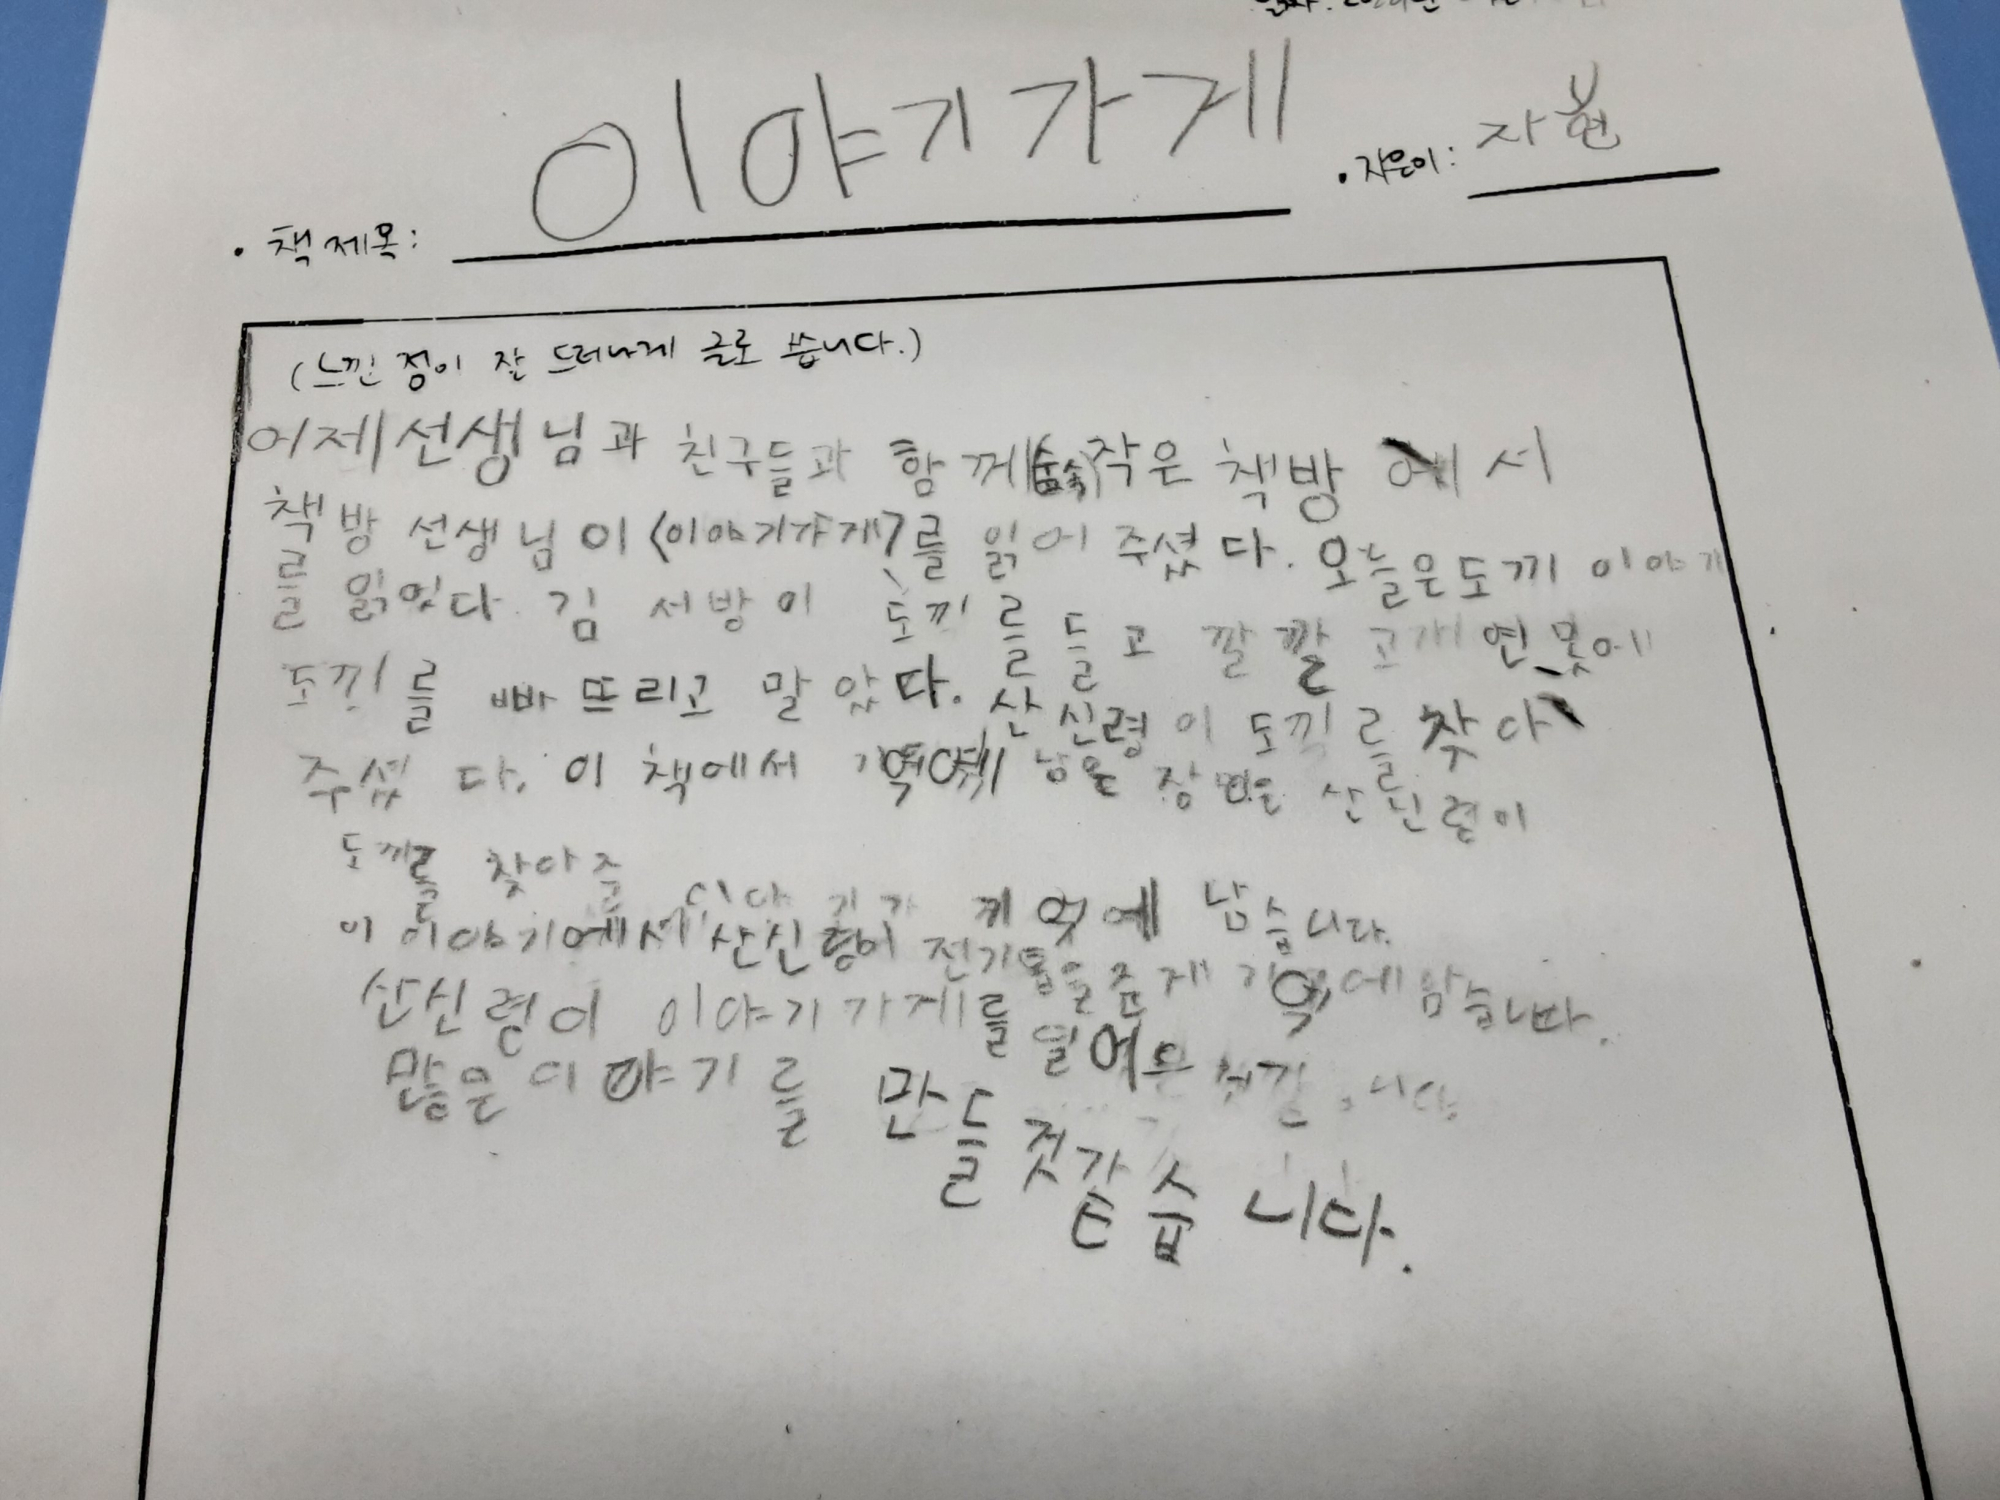 이야기가게
• 책 제목:
• 지은이: 자현
(느낀 점이 잘 드러나게 글로 씁니다.)
어제 선생님과 친구들과 함께 작은 책방에서
책방 선생님이 <이야기가게>를 읽어 주셨다. 오늘은 도끼 이야기
를 읽었다. 김 서방이 도끼를 들고 깔깔 고개 연못에
도끼를 빠뜨리고 말았다. 산신령이 도끼를 찾아
주셨다. 이 책에서 기억에 남은 장면은 산신령이
도끼를 찾아준 이야기가 기억에 남습니다.
이 이야기에서 산신령이 전기톱을 준게 기억에 남습니다.
산신령이 이야기가게를 열어
많은 이야기를 만들것같습니다.